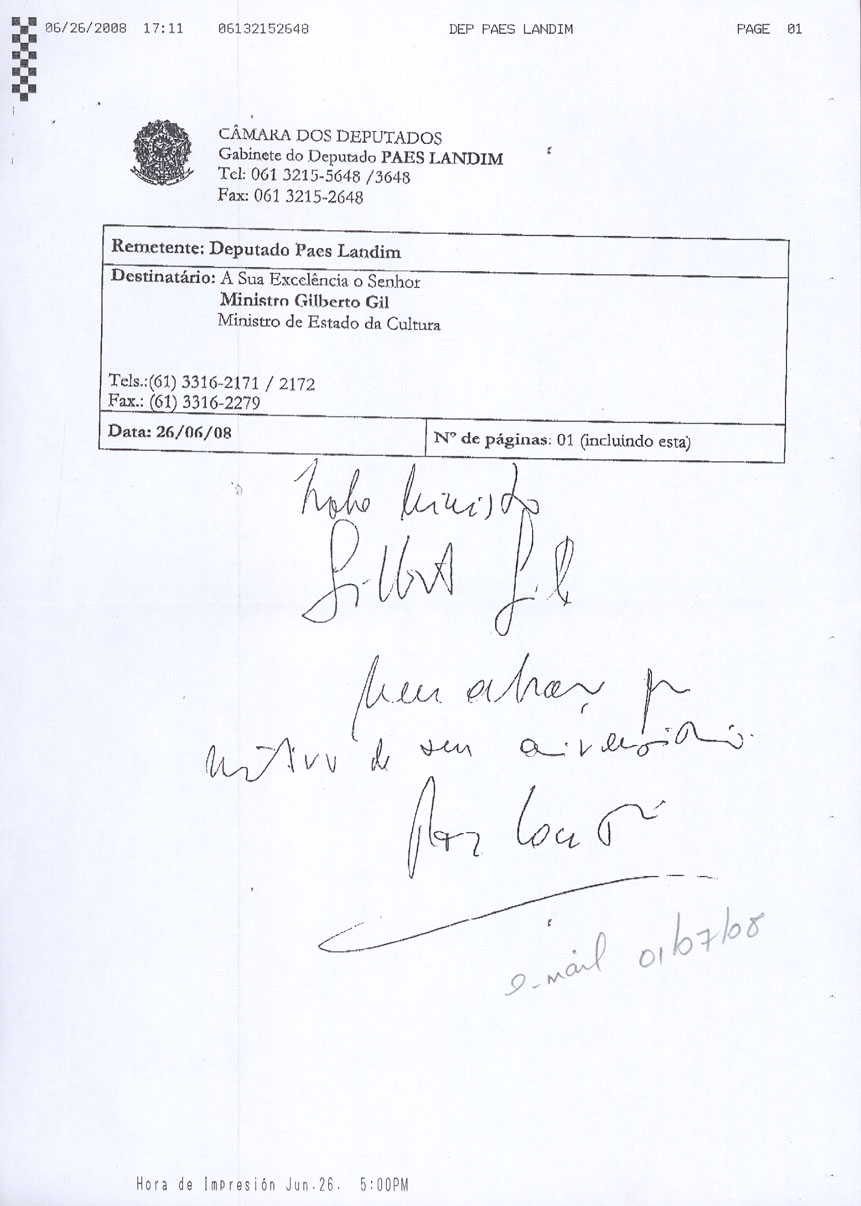 06/26/2008 17:11 06132152648 DEP PAES LANDIM PAGE 01
CÂMARA DOS DEPUTADOS
Gabinete do Deputado PAES LANDIM
Tel: 061 3215-5648 /3648
Fax: 061 3215-2648
Remetente: Deputado Paes Landim
Destinatário: A Sua Excelência o Senhor
Ministro Gilberto Gil
Ministro de Estado da Cultura
Tels.:(61) 3316-2171 / 2172
Fax.: (61) 3316-2279
Data: 26/06/08 Nº de páginas: 01 (incluindo esta)
Ministro
Gilberto Gil
Meu abraço por
motivo de seu aniversário.
Paes Landim
e-mail 01/07/08
Hora de Impresión Jun.26. 5:00PM